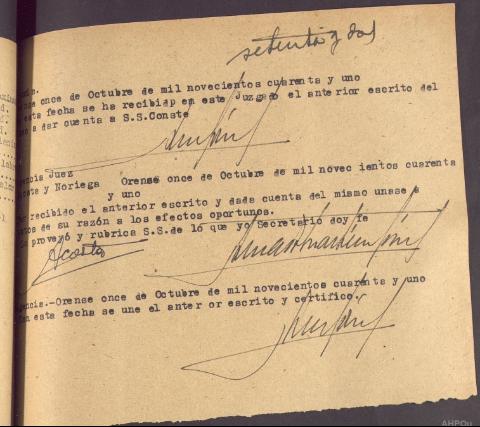 setenta y dos
once de Octubre de mil novecientos cuarenta y uno
esta fecha se ha recibidp en este Juzgado el anterior escrito del
a dar cuenta a S.S.Conste
Juez
y Noriega Orense once de Octubre de mil novec ientos cuarenta
y uno
recibido el anterior escrito y dada cuenta del mismo unase a
de su razón a los efectos oportunos.
proveyó y rubrica S.S.de lo que yo Secretario doy fe
Acosta
.-Orense once de Octubre de mil novecientos cuarenta y uno
esta fecha se une el anter or escrito y certifico.
AHPOu